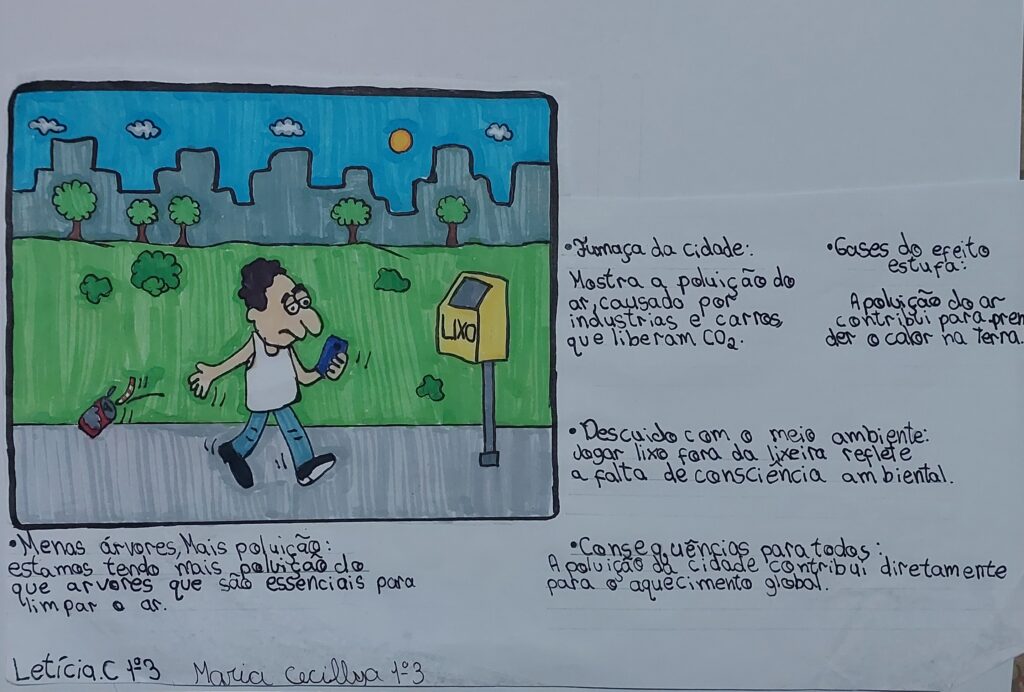 LIXO
•Fumaça da cidade:
Mostra a poluição do
ar, causado por
industrias e carros,
que liberam CO₂.
•Gases do efeito
estufa:
A poluição do ar
contribui para pren
der o calor na Terra.
•Descuido com o meio ambiente:
Jogar lixo fora da lixeira reflete
a falta de consciência ambiental.
•Menas árvores, Mais poluição:
estamos tendo mais poluição do
que arvores que são essenciais para
limpar o ar.
•Consequências para todos:
A poluição da cidade contribui diretamente
para o aquecimento global.
Letícia.C 1º3
Maria Cecillya 1º3